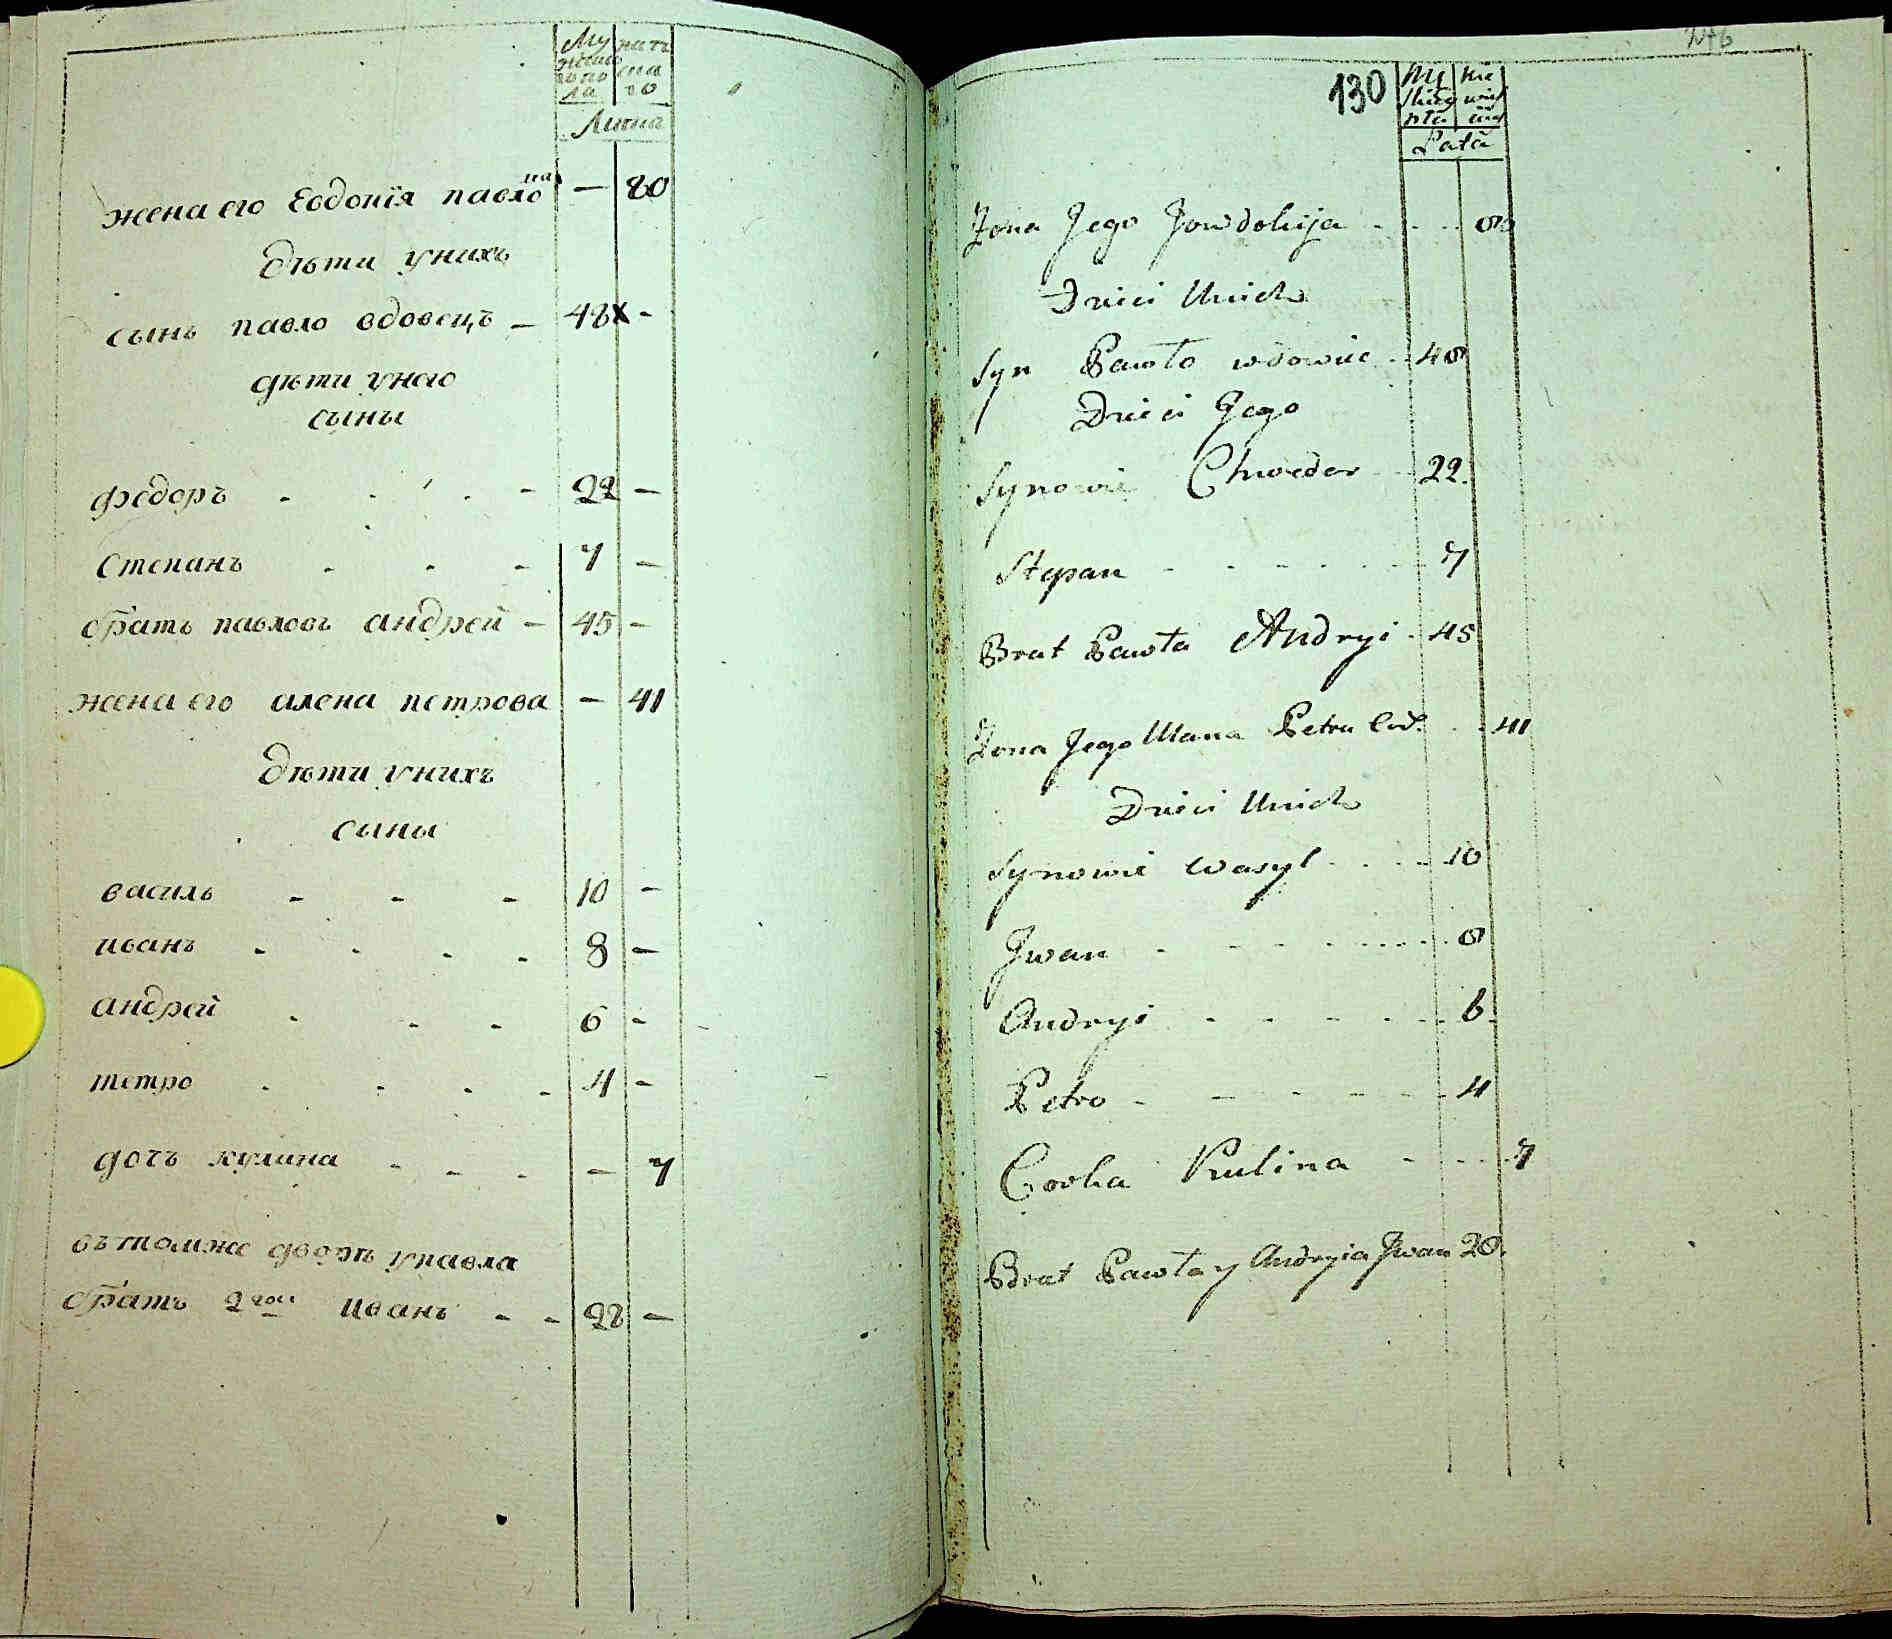 Му жеска го по ла
жена его Евдокія павло на — 80
дѣти унихъ
сынъ павло вдовецъ — 48 x -
дѣти унего
сыны
федоръ - - - - 22 —
степанъ - - - 7 —
братъ павловъ андрей — 45 —
жена его алена петрова — 41
дѣти унихъ
сыны
василь - - - 10 —
иванъ - - - - 8 —
андрей - - - 6 -
петро - - - - 4 -
дочъ кулина - - - — 7
въ томже дворѣ упавла
братъ 2гои иванъ - - 28 —
246
130
Lata
Żona Jego Jowdokija - - - 80
Dzieci Unich
Syn Pawło wdowiec - 48
Dzieci Jego
Synowie Chwedor - 22.
Stepan - - - - - - 7
Brat Pawła Andryi - 45
Żona Jego Ulana Petra - - 41
Dzieci Unich
Synowie Wasyl - - - 10
Jwan - - - - - - 8
Andryi - - - - - 6
Petro - - - - - - 4
Corka Kulina - - - 7
Brat Pawła y Andryia Jwan 28.